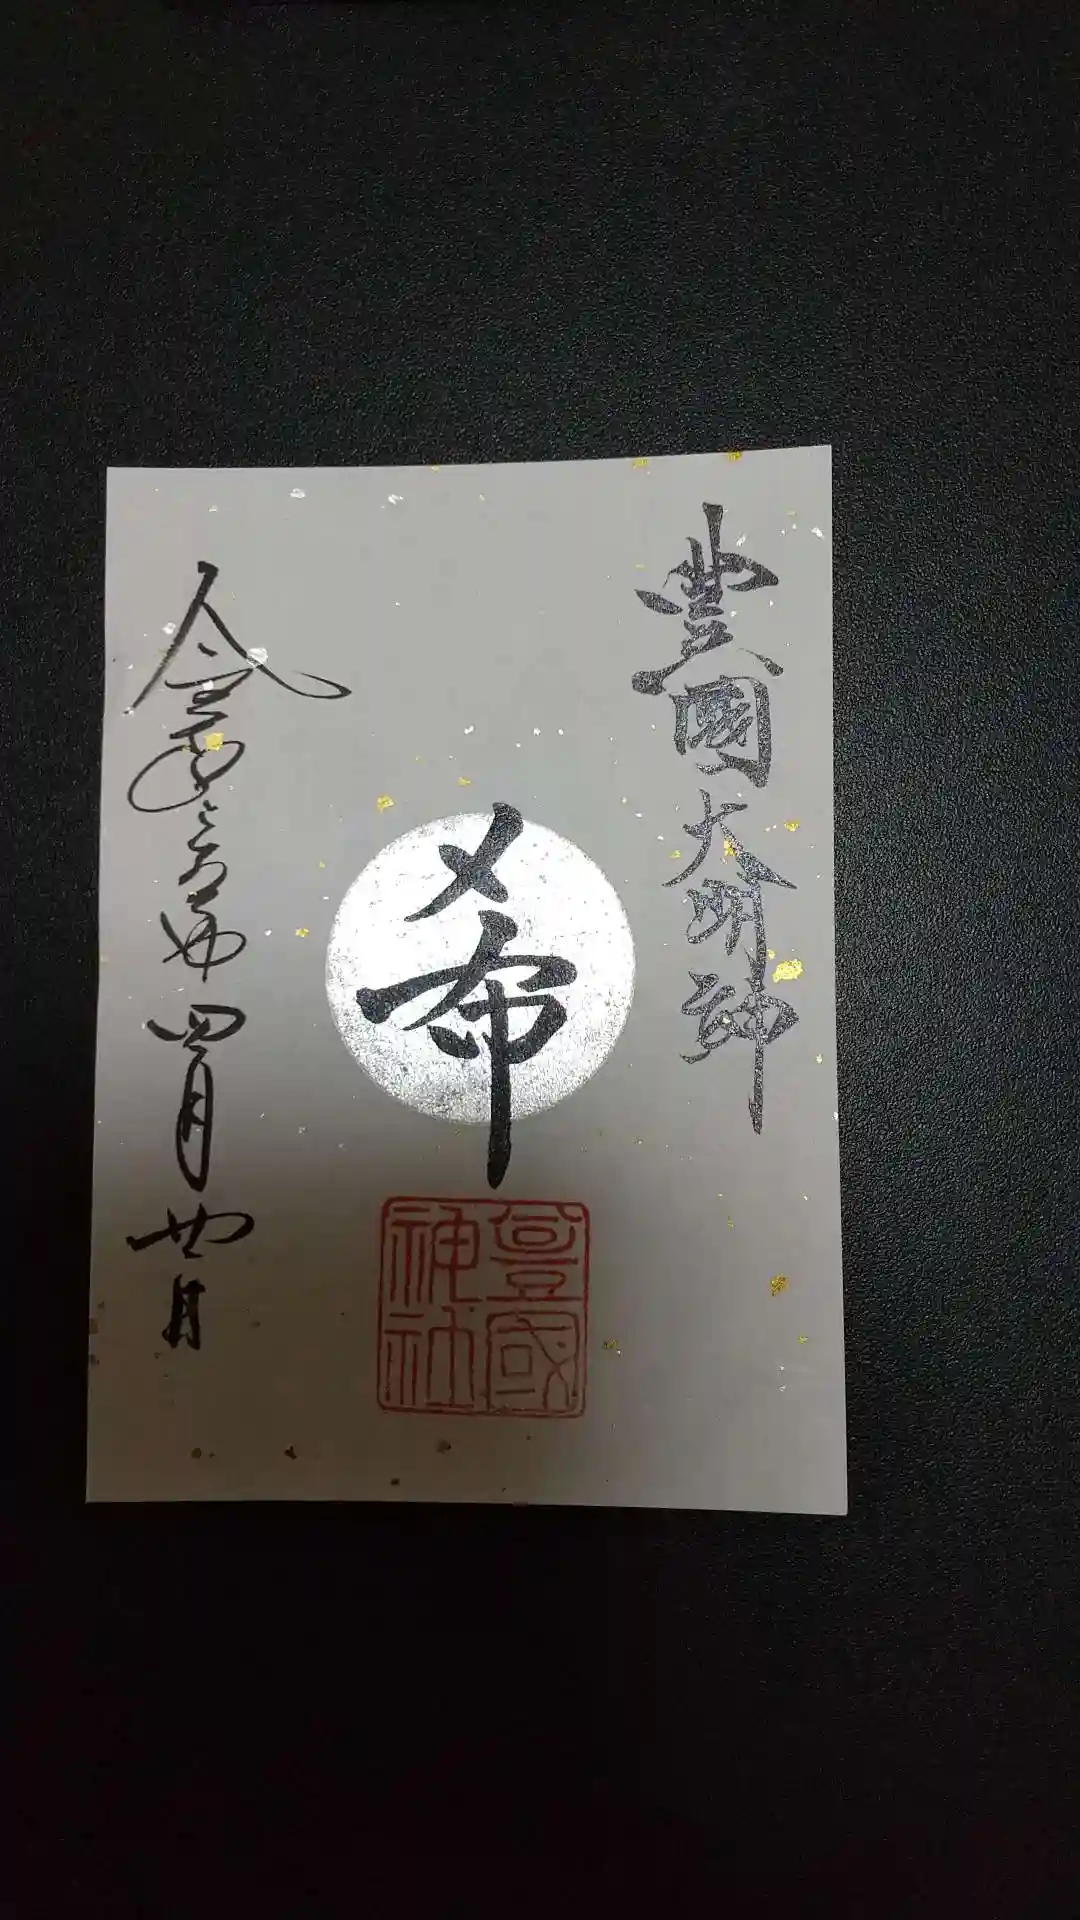 豊國大明神
希
豊國神社
令和六年四月廿日